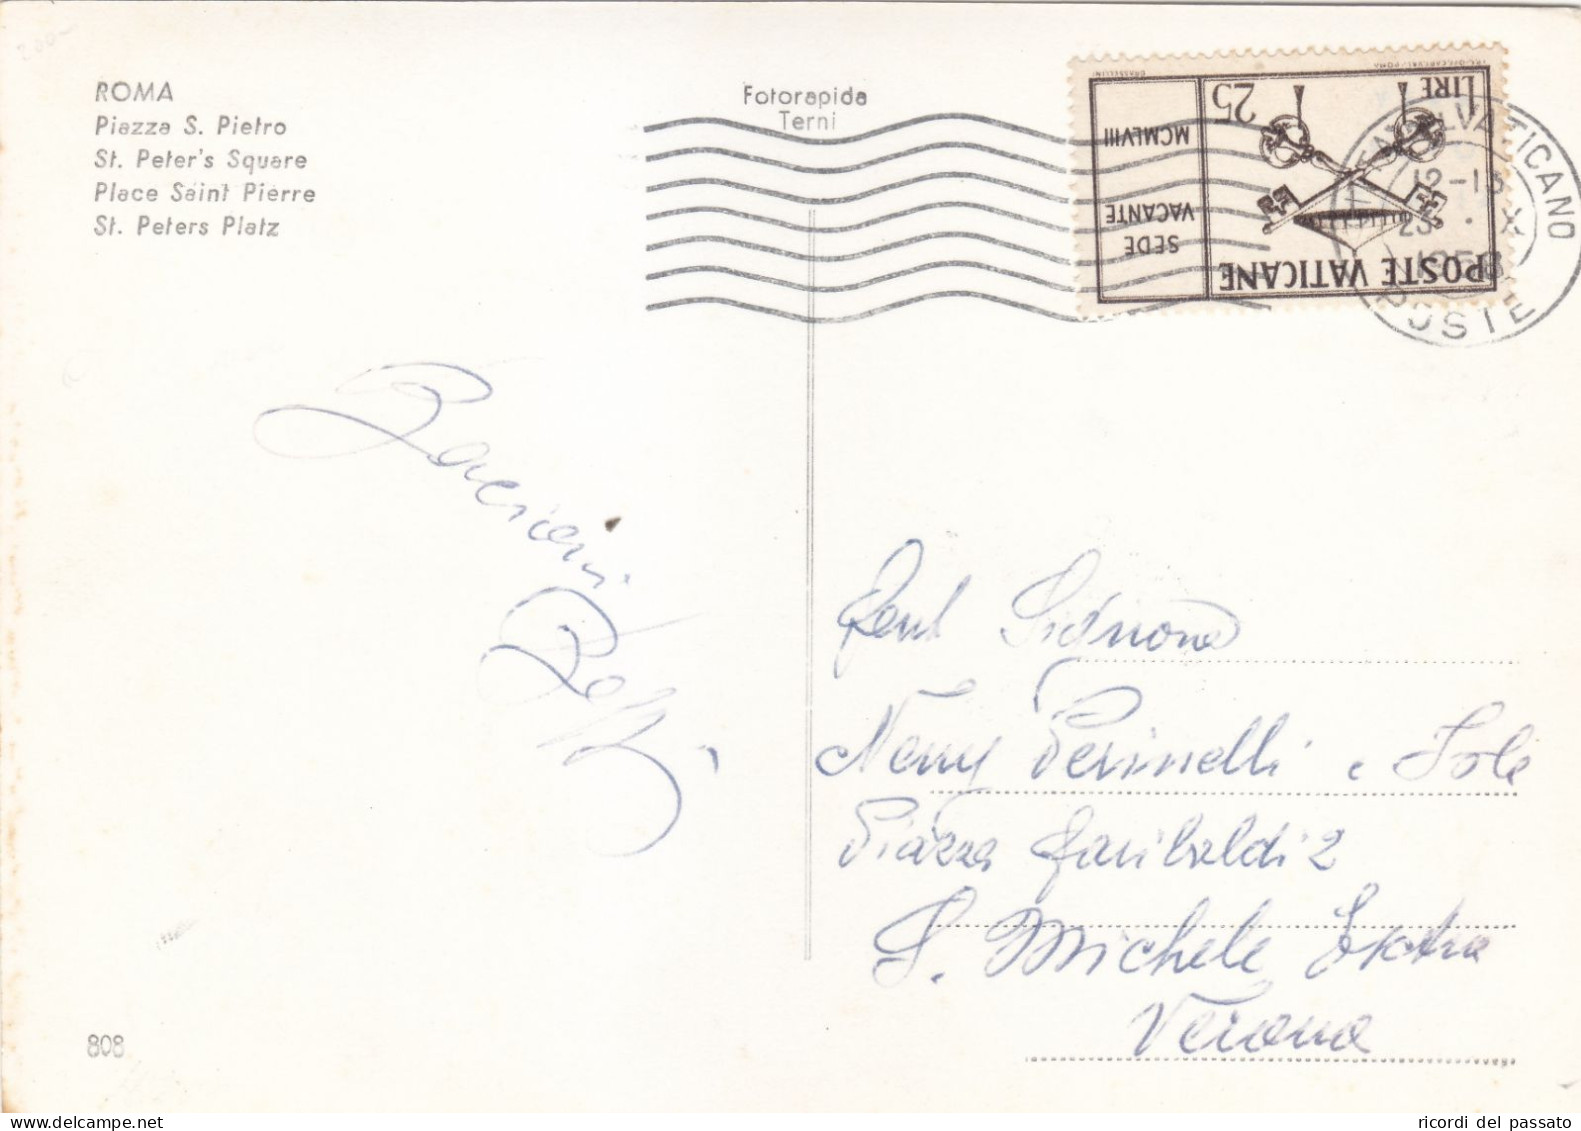 200-
ROMA
Piazza S. Pietro
St. Peter's Square
Place Saint Pierre
St. Peters Platz
Fotorapida
Terni
POSTE VATICANE
SEDE
VACANTE
MCMLVIII
25
LIRE
VATICANO
12-13
23. X
POSTE
Bacioni
Gent Signora
Neny Perinelli e Sole
Piazza Garibaldi 2
S. Michele Extra
Verona
808
ricordi del passato